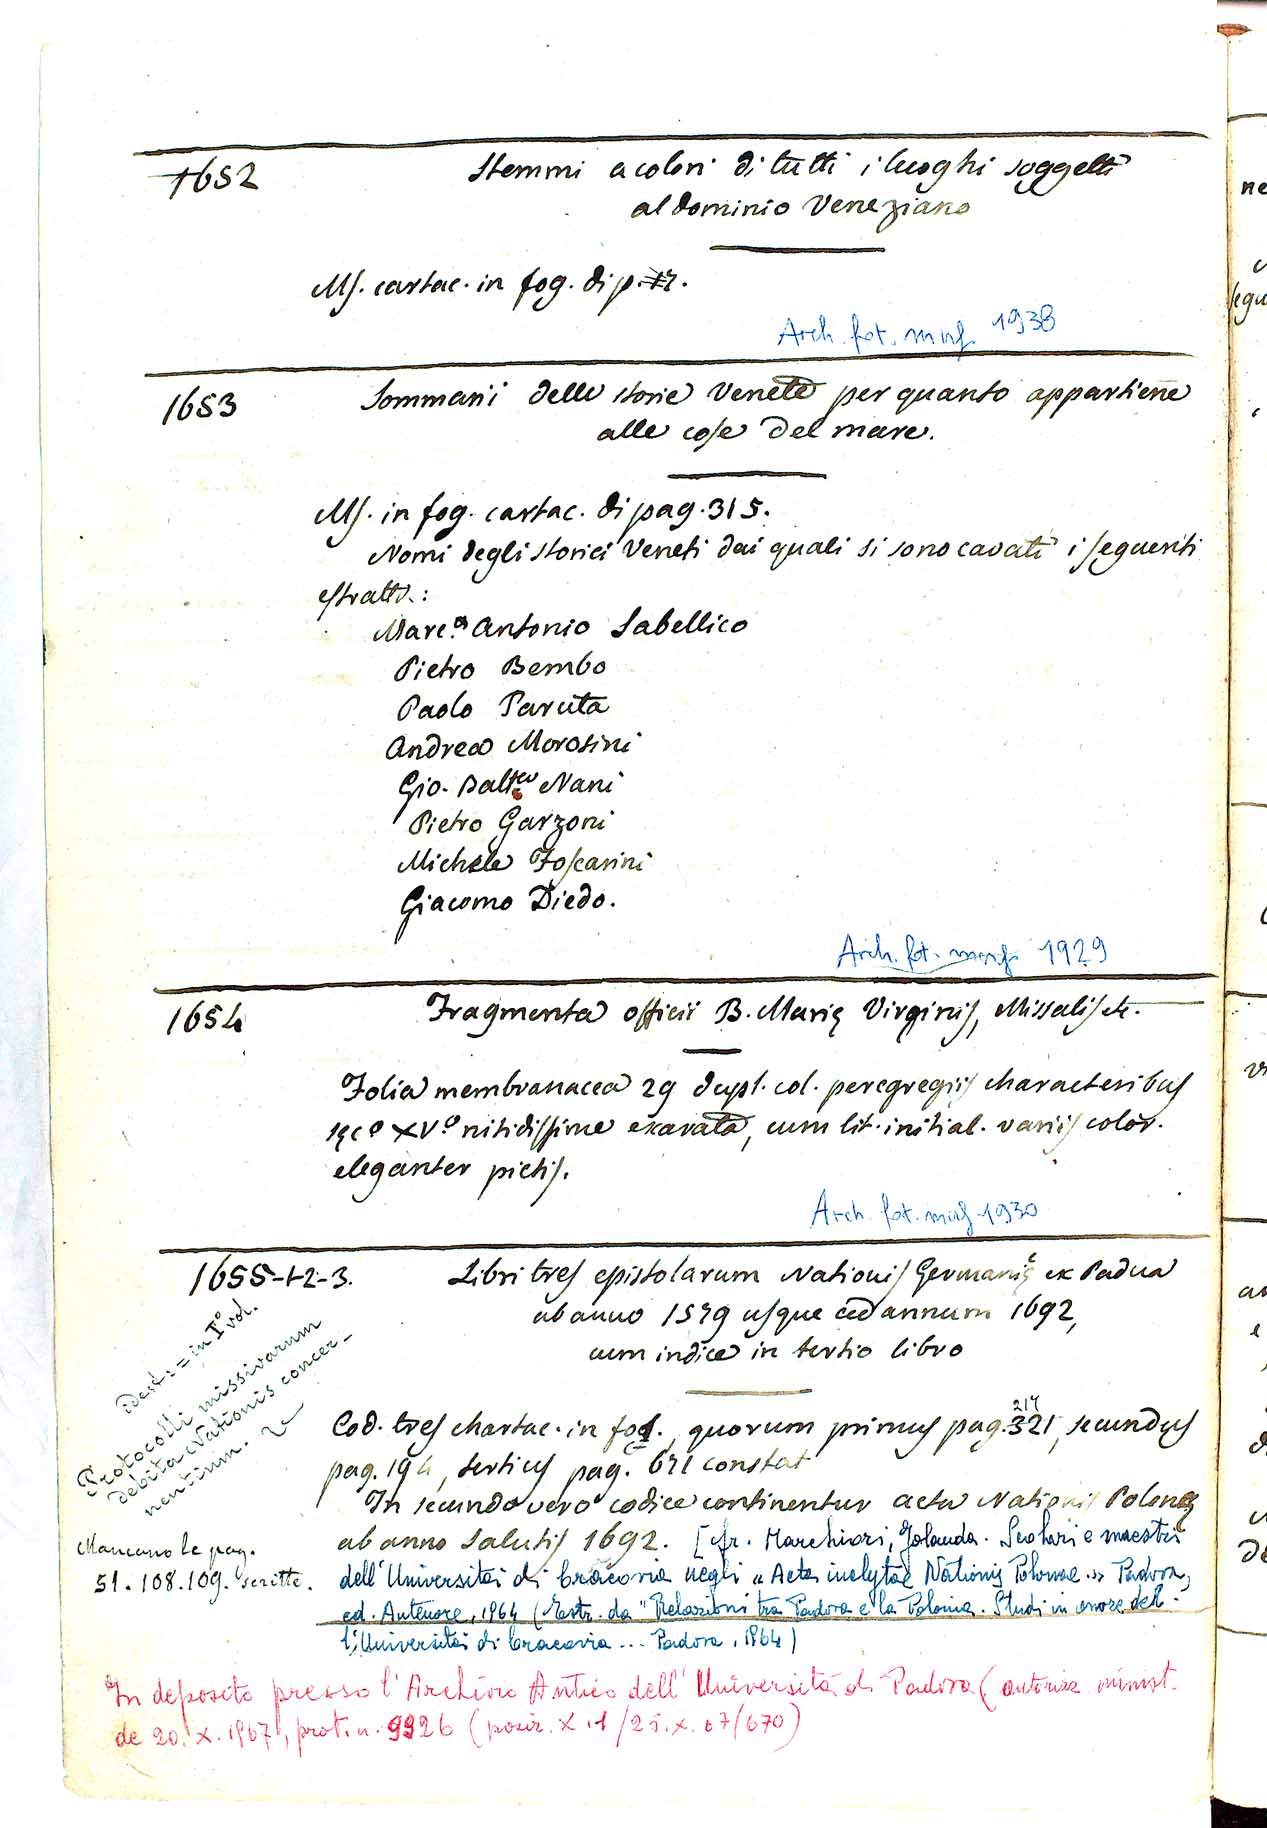 1652 Stemmi a colori di tutti i luoghi soggetti
al dominio Veneziano
Ms. cartac. in fog. di p.
Arch. fot. misc. 1938
1653 Sommarii delle storie Venete per quanto appartiene
alle cose del mare.
Ms. in fog. cartac. di pag. 315.
Nomi degli storici Veneti dai quali si sono cavati i seguenti
estratti.:
Marc.º Antonio Sabellico
Pietro Bembo
Paolo Paruta
Andrea Morosini
Gio. Batt.ta Nani
Pietro Garzoni
Michele Foscarini
Giacomo Diedo.
Arch. fot. 1929
1654 Fragmenta officii B. Marię Virginis, Missalis etc.
Folia membranacea 29 dupl. col. peregregiis characteribus
sęcº XVº nitidissime exarata, cum lit. initial. variis color.
eleganter pictis.
Arch. fot. 1930
1655-1-2-3. Libri tres epistolarum Nationis Germanię ex Padua
ab anno 1579 usque ad annum 1692,
cum indice in tertio libro
idest: = in Iº vol.
Protocolli missivarum
debita Nationis concer-
nentium.
Cod. tres chartac. in fog., quorum primus pag. 321 217, secundus
pag. 194, tertius pag. 671 constat
In secundo vero codice continentur acta Nationis Polonę
ab anno salutis 1692. [cfr. Marchiori, Jolanda. Scolari e maestri
Mancano le pag.
51. 108. 109. scritte.
dell'Università di Cracovia negli "Acta inclytae Nationis Polonae." Padova,
ed. Antenore, 1964 (Estr. da "Relazioni tra Padova e la Polonia. Studi in onore del-
l'Università di Cracovia ... Padova, 1964)
In deposito presso l'Archivio Antico dell'Università di Padova (autorizz. minist.
de 20. X. 1967, prot. n. 9926 (posiz. X. 1/25. X. 67/670)